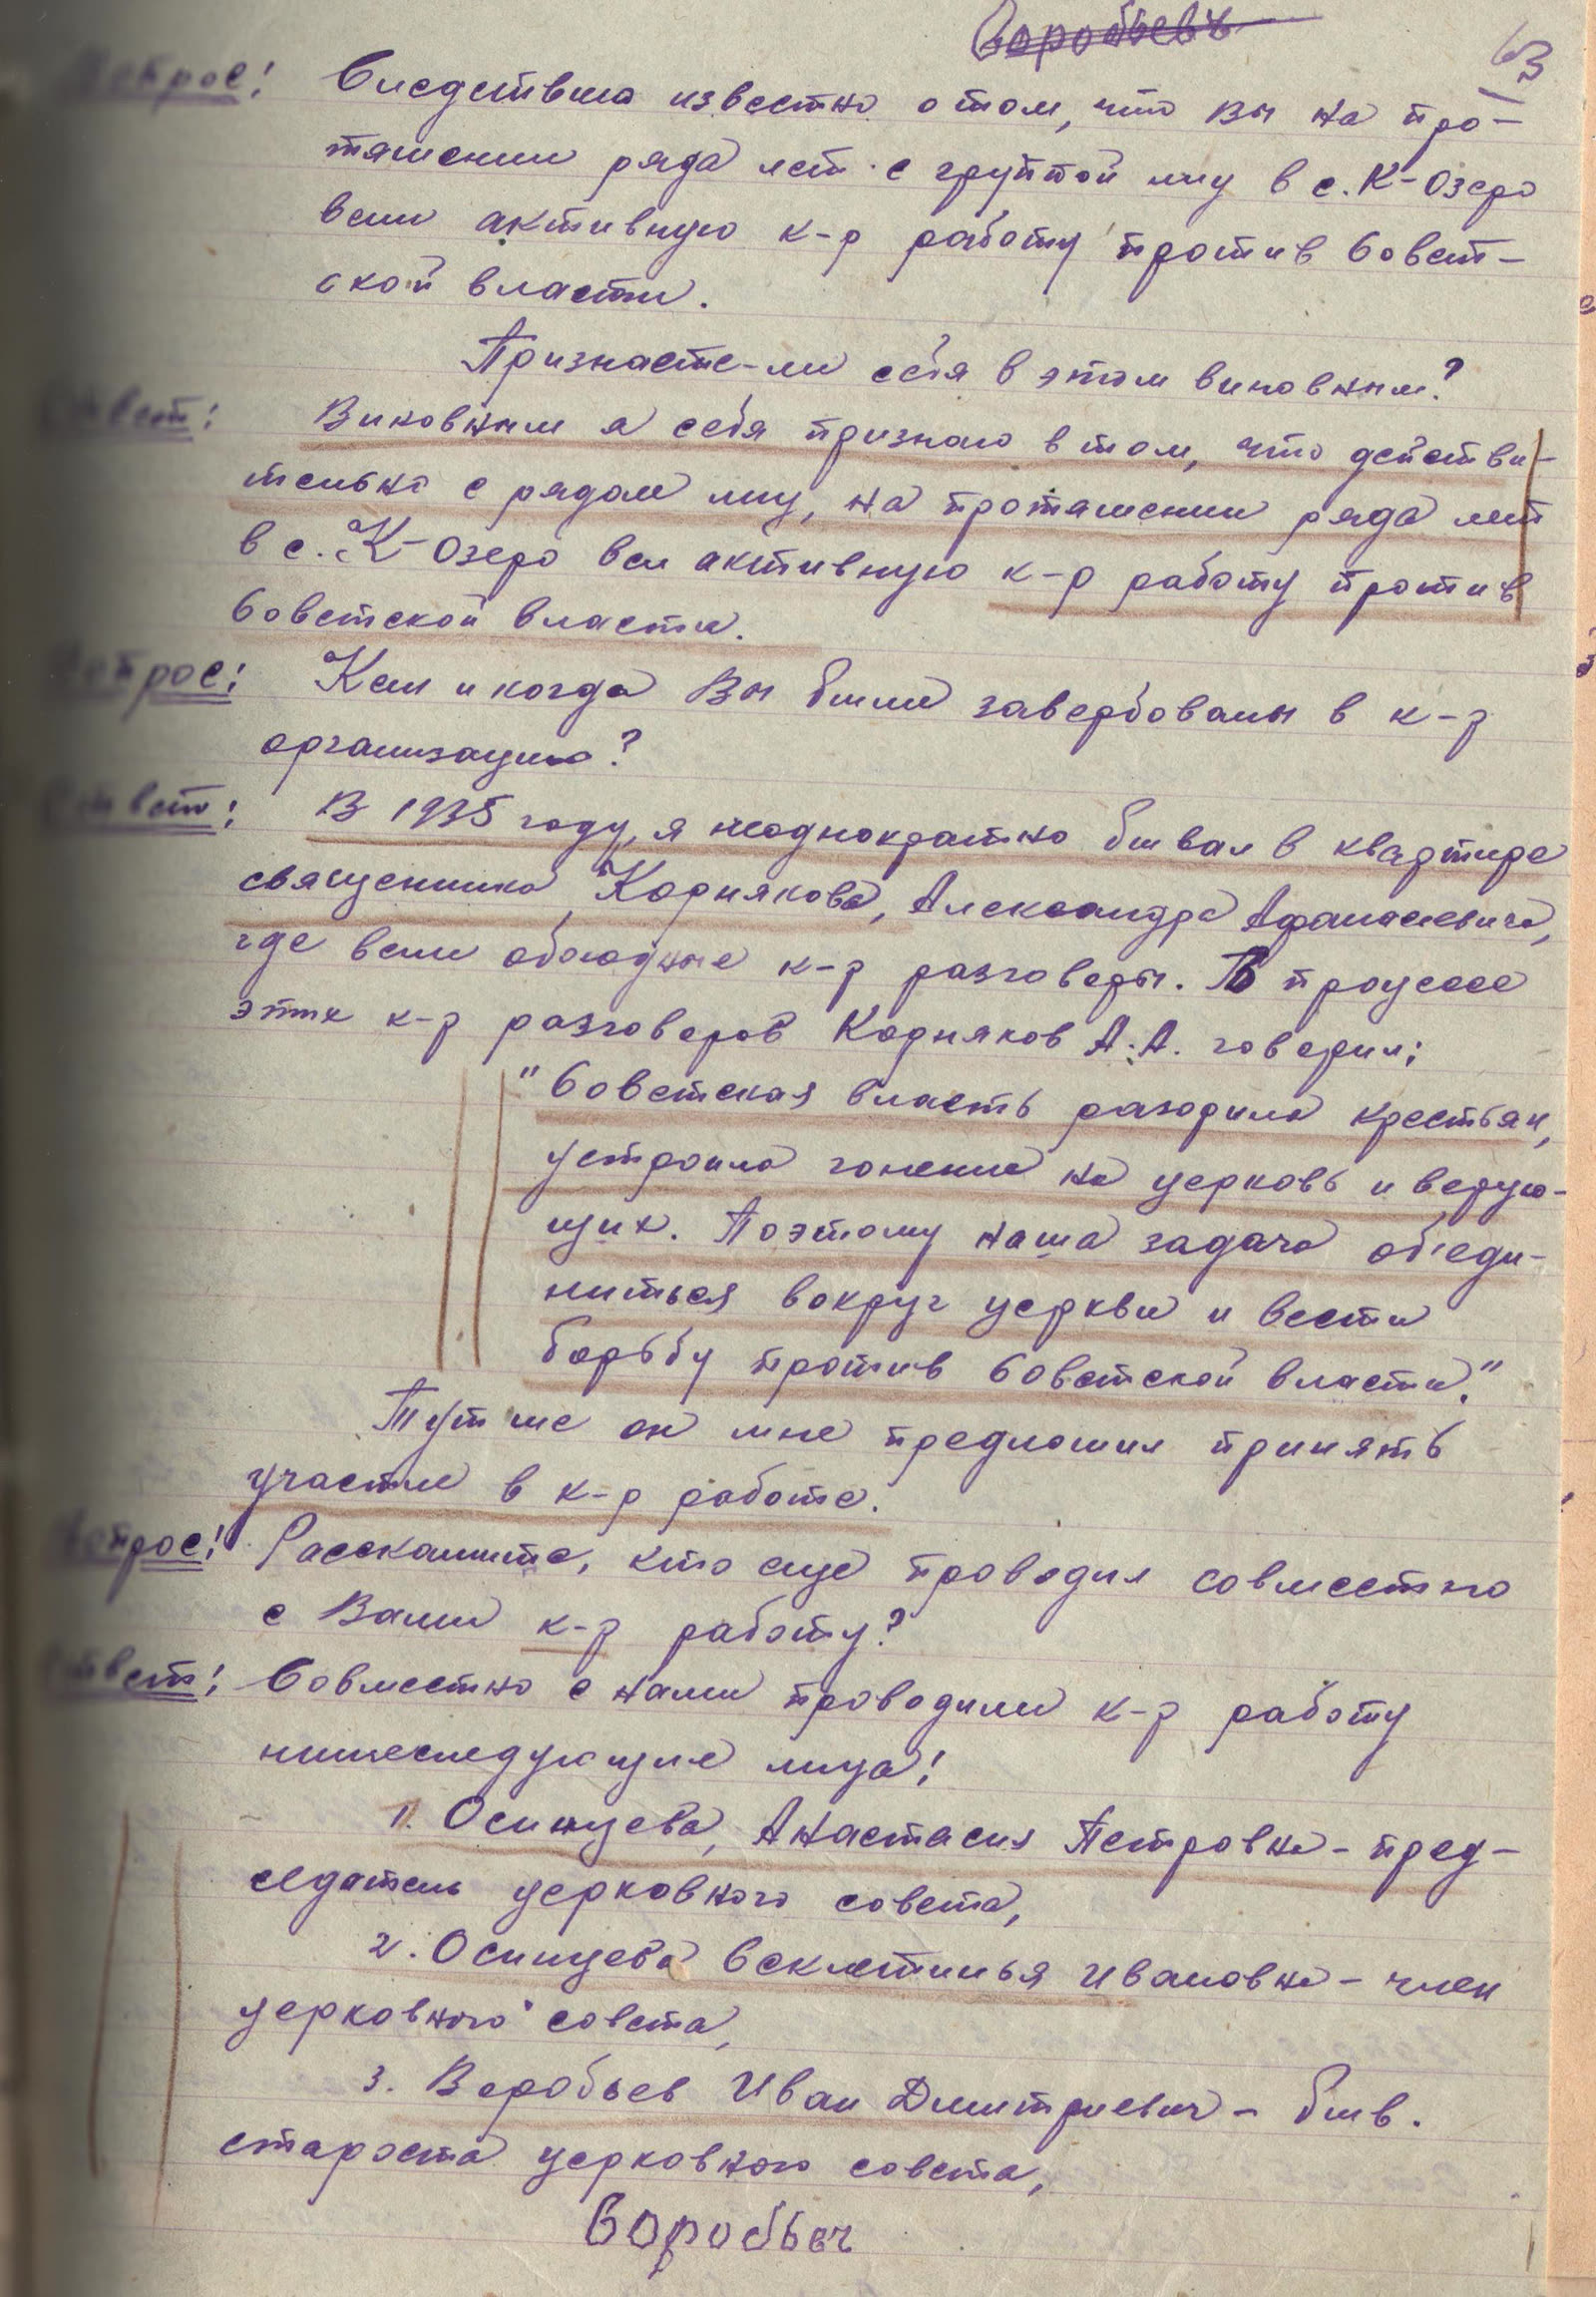 Воробьевъ
63
Вопрос: Следствию известно о том, что Вы на про-
тяжении ряда лет с группой лиц в с. К-Озеро
вели активную к-р работу против Совет-
ской власти.
Признаете-ли себя в этом виновным?
Ответ: Виновным я себя признаю в том, что действи-
тельно с рядом лиц, на протяжении ряда лет
в с. К-Озеро вел активную к-р работу против
Советской власти.
Вопрос: Кем и когда Вы были завербованы в к-р
организацию?
Ответ: В 1935 году, я неоднократно бывал в квартире
священника, Корнякова, Александра Афанасьевича,
где вели обоюдные к-р разговоры. В процессе
этих к-р разговоров Корняков А.А. говорил:
"Советская власть разорила крестьян,
устроила гонение на церковь и верую-
щих. Поэтому наша задача об'еди-
ниться вокруг церкви и вести
борьбу против Советской власти."
Тут же он мне предложил принять
участие в к-р работе.
Вопрос: Расскажите, кто еще проводил совместно
с Вами к-р работу?
Ответ: Совместно с нами проводили к-р работу
нижеследующие лица:
1. Осинцева, Анастасия Петровна - пред-
седатель церковного совета,
2. Осинцева Секлетинья Ивановна - член
церковного совета,
3. Воробьев Иван Дмитриевич - быв.
староста церковного совета,
Воробьвч